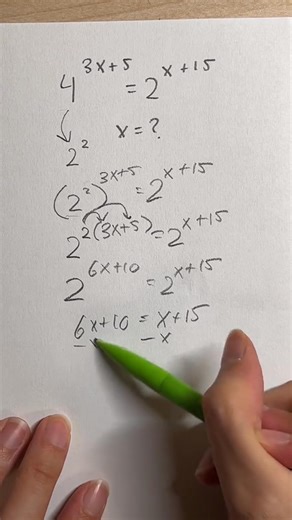 4^(3x+5) = 2^(x+15)
2^2 x = ?
(2^2)^(3x+5) = 2^(x+15)
2^(2(3x+5)) = 2^(x+15)
2^(6x+10) = 2^(x+15)
6x+10 = x+15
-x -x